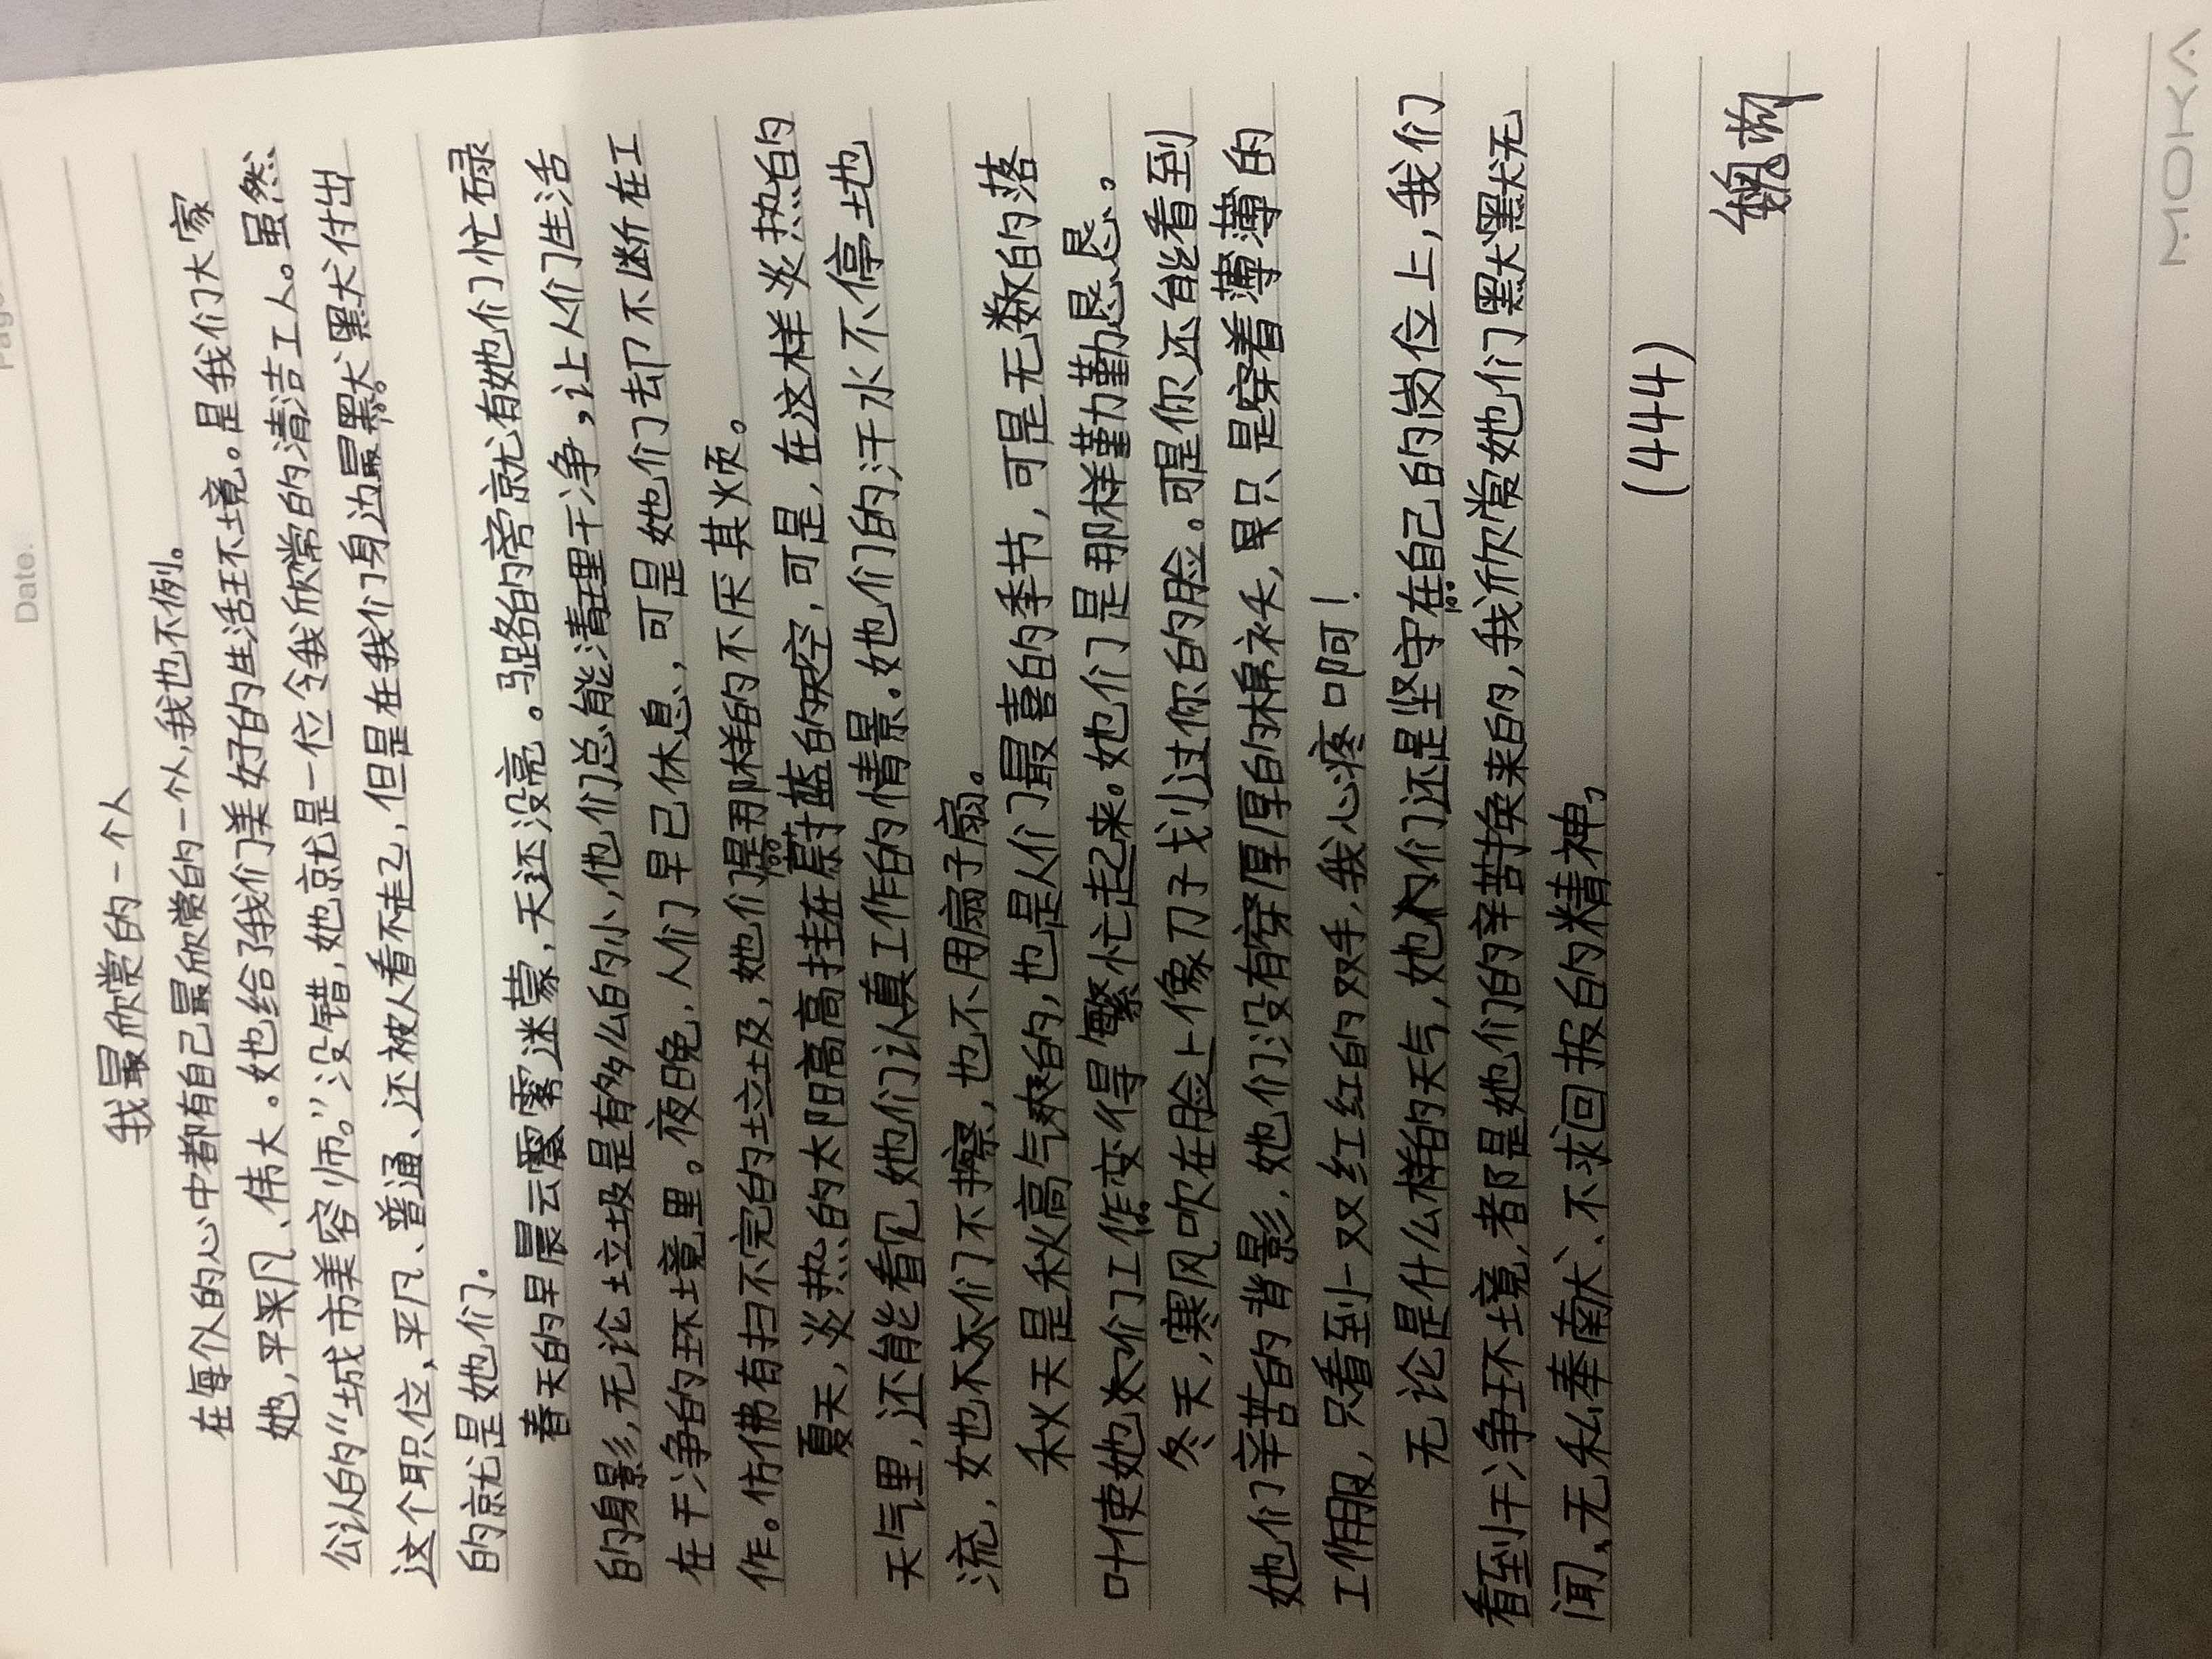 Date.
我最欣赏的一个人
在每个人的心中都有自己最欣赏的一个人,我也不例。
她,平平凡、伟大。她给了我们美好的生活环境。是我们大家
公认的“城市美容师。”没错,她就是一位令我欣常的清洁工人。虽然
这个职位,平凡、普通、还被人看不起,但是在我们身边最默默付出
的就是她们.
春天的早晨云雾迷蒙,天还没亮。路的旁就有她们忙碌
的身影,无论垃圾是有多么的小,他们总能清理干净,让人们生活
在干净的环境里。夜晚,人们早已休息,可是她们却不断在工
作。仿佛有扫不完的垃圾,她们是那样的不厌其烦。
夏天,炎热的太阳高高挂在蔚蓝的天空,可是,在这样炎热的
天气里,还能看见她们认真工作的情景.她们的汗水不停地
流,她们不擦,也不用扇子扇。
秋天是秋高气爽的,也是人们最喜的季节,可是无数的落
叶使她们工作变得繁忙起来。她们是那样勤勤恳恳。
冬天,寒风吹在脸上像刀子划过你的脸。可是你还能看到
她们辛苦的背影,她们没有穿厚厚的棉衤,只是穿着薄薄的
工作服,只看到一双双红红的双手,我心疼啊!
无论是什么样的天气,她们还是坚守在自己的岗位上,我们
看到干净环境,都是她们的辛苦换来的,我欣赏她们默默无
闻、无私奉献、不求回报的精神,
(444)
MOKA